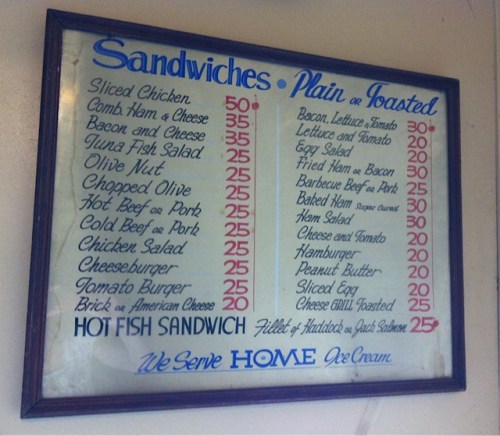 Sandwiches • Plain OR Toasted
Sliced Chicken 50¢
Comb. Ham & Cheese 35
Bacon and Cheese 35
Tuna Fish Salad 25
Olive Nut 25
Chopped Olive 25
Hot Beef OR Pork 25
Cold Beef OR Pork 25
Chicken Salad 25
Cheeseburger 25
Tomato Burger 25
Brick OR American Cheese 20
Bacon, Lettuce & Tomato 30¢
Lettuce and Tomato 20
Egg Salad 20
Fried Ham OR Bacon 30
Barbecue Beef OR Pork 25
Baked Ham Sugar Cured 30
Ham Salad 30
Cheese and Tomato 20
Hamburger 20
Peanut Butter 20
Sliced Egg 20
Cheese GRILL Toasted 25
HOT FISH SANDWICH Fillet of Haddock OR Jack Salmon 25¢
We Serve HOME Ice Cream